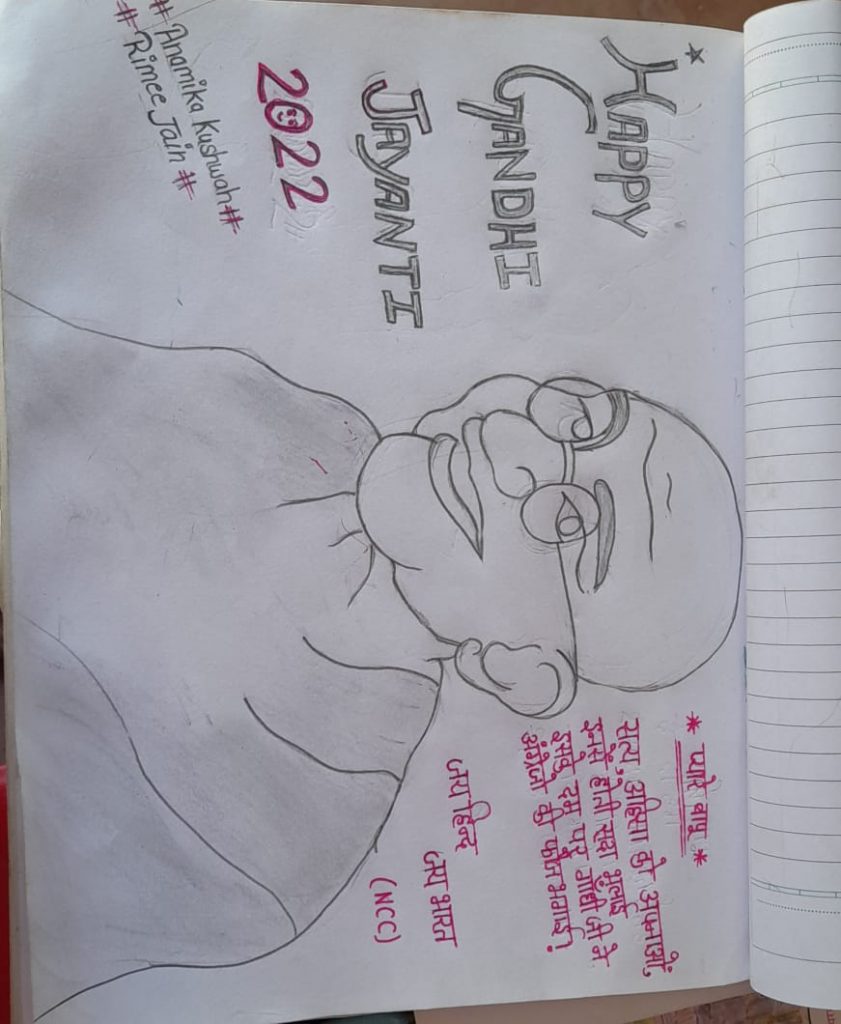 HAPPY
GANDHI
JAYANTI
2022
# Anamika Kushwah #
# Rimee Jain #
* प्यारे बापू *
सत्य, अहिंसा को अपनाओं,
इनसे होती सदा भलाई
इसके दम पर गाँधी जी ने
अंग्रेजो की फौज भगाई।
जय हिन्द
जय भारत
(NCC)